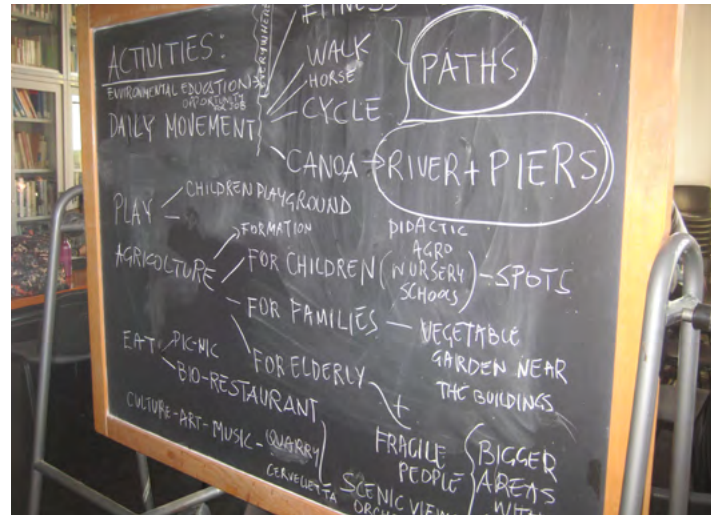 ACTIVITIES:
EVERYWHERE
FITNESS
ENVIRONMENTAL EDUCATION
OPPORTUNITY
DAILY MOVEMENT
WALK
HORSE
CYCLE
CANOA → RIVER + PIERS
PATHS
PLAY
CHILDREN PLAYGROUND
AGRICOLTURE
FORMATION
FOR CHILDREN (DIDACTIC AGRO NURSERY SCHOOLS) - SPOTS
FOR FAMILIES - VEGETABLE
GARDEN NEAR
THE BUILDINGS
FOR ELDERLY
+
FRAGILE
PEOPLE
BIGGER
AREAS
EAT
PIC-NIC
BIO-RESTAURANT
CULTURE-ART-MUSIC-QUARRY
CERVELLETTA
SCENIC VIEWS